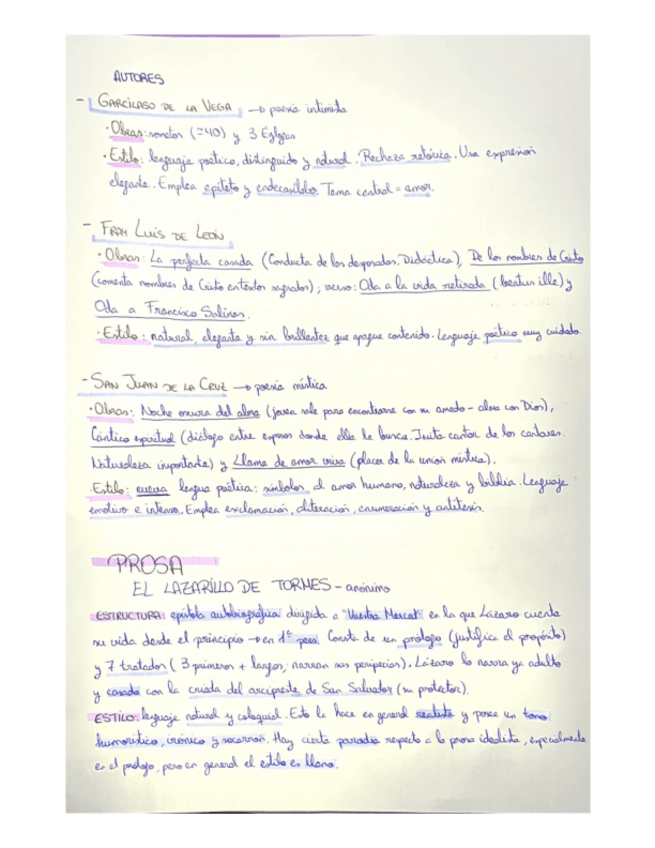 AUTORES
- GARCILASO DE LA VEGA → poesía intimista
· Obras: sonetos (≈40) y 3 Églogas
· Estilo: lenguaje poético, distinguido y natural. Rechaza retórica. Usa expresión
elegante. Emplea epíteto y endecasílabo. Tema central = amor.
- FRAY LUIS DE LEÓN
· Obras: La perfecta casada (Conducta de los desposados. Didáctica), De los nombres de Cristo
(comenta nombres de Cristo en textos sagrados); verso: Oda a la vida retirada (beatus ille) y
Oda a Francisco Salinas.
· Estilo: natural, elegante y sin brillantez que apague contenido. Lenguaje poético muy cuidado.
- SAN JUAN DE LA CRUZ → poesía mística
· Obras: Noche oscura del alma (joven sale para encontrarse con su amado - alma con Dios),
Cántico espiritual (diálogo entre esposos donde ella le busca. Imita cantar de los cantares.
Naturaleza importante) y Llama de amor viva (placer de la unión mística).
· Estilo: nueva lengua poética: símbolos, al amor humano, naturaleza y biblia. Lenguaje
emotivo e intenso. Emplea exclamación, aliteración, enumeración y antítesis.
PROSA
EL LAZARILLO DE TORMES - anónimo
ESTRUCTURA: epístola autobiográfica dirigida a "Vuestra Merced" en la que Lázaro cuenta
su vida desde el principio → en 1ª pers. Consta de un prólogo (justifica el propósito)
y 7 tratados (3 primeros + largos, narran sus peripecias). Lázaro lo narra ya adulto
y casado con la criada del arcipreste de San Salvador (su protector).
ESTILO: lenguaje natural y coloquial. Esto la hace en general realista y posee un tono
humorístico, irónico y socarrón. Hay cierta parodia respecto a la prosa idealista, especialmente
en el prólogo, pero en general el estilo es llano.